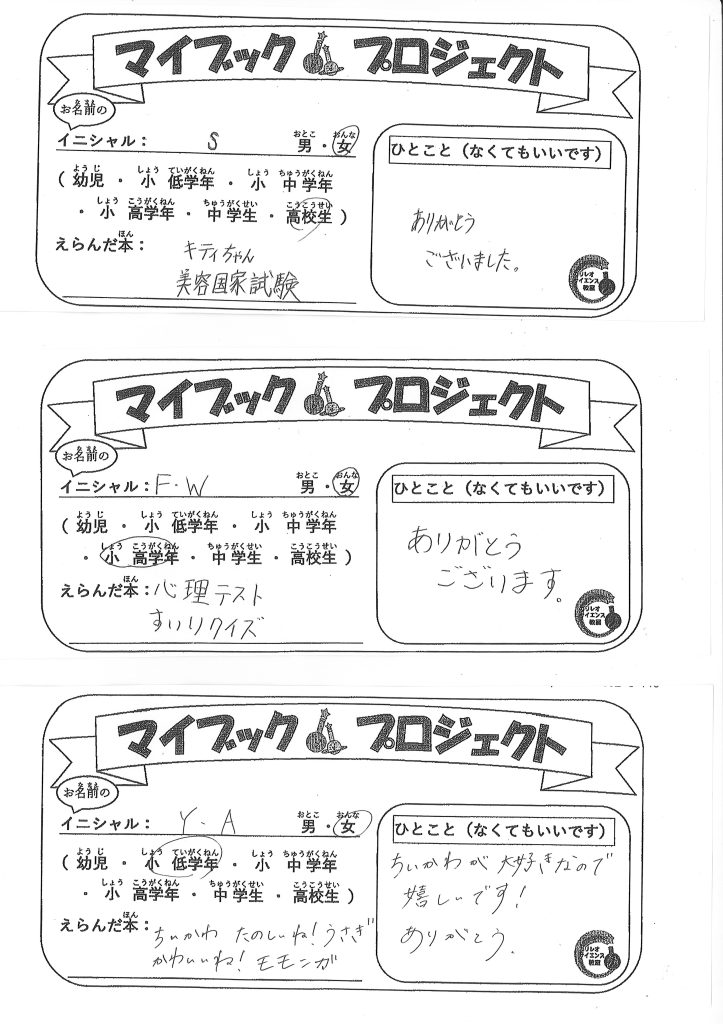 マイブック プロジェクト
お名前の
イニシャル： S 男・女
（ 幼児 ・ 小 低学年 ・ 小 中学年
・ 小 高学年 ・ 中学生 ・ 高校生 ）
えらんだ本： キティちゃん
美容国家試験
ひとこと（なくてもいいです）
ありがとう
ございました。
マイブック プロジェクト
お名前の
イニシャル： F・W 男・女
（ 幼児 ・ 小 低学年 ・ 小 中学年
・ 小 高学年 ・ 中学生 ・ 高校生 ）
えらんだ本： 心理テスト
すいりクイズ
ひとこと（なくてもいいです）
ありがとう
ございます。
マイブック プロジェクト
お名前の
イニシャル： Y・A 男・女
（ 幼児 ・ 小 低学年 ・ 小 中学年
・ 小 高学年 ・ 中学生 ・ 高校生 ）
えらんだ本： ちいかわ たのしいね！うさぎ
かわいいね！ モモンガ
ひとこと（なくてもいいです）
ちいかわが 大好きなので
嬉しいです！
ありがとう.